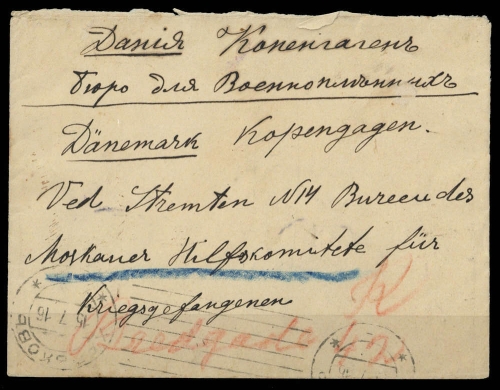 Данія Копенгагенъ
бюро для Военноплѣнныхъ
Dänemark Kopengagen.
Ved Stremten N14 Bureau des
Moskauer Hilfskomitete für
Kriegsgefangenen
K
42
15.7.16